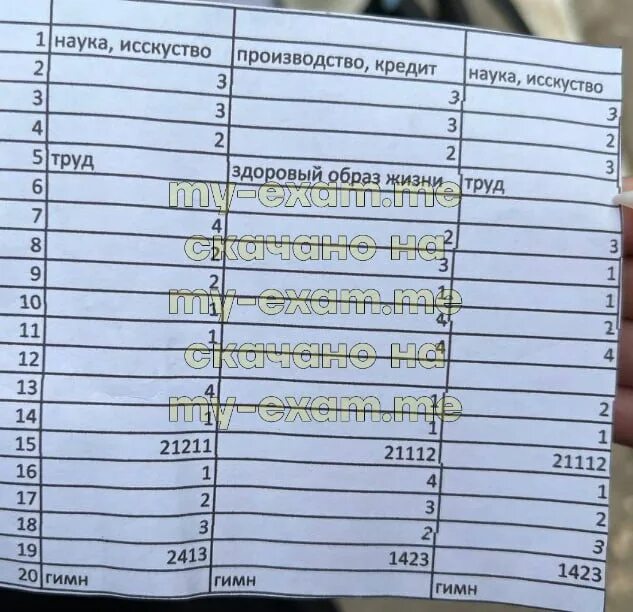 1 наука, исскуство производство, кредит наука, исскуство
2 3 3 3
3 3 3 2
4 2 2 3
5 труд здоровый образ жизни труд
6
my-exam.me
7 4 2 3
8 2 3 1
скачано на
9 2 1 1
10 1 4 2
my-exam.me
11 1 4 4
12
скачано на
13 4 1 2
my-exam.me
14 1 1 1
15 21211 21112 21112
16 1 4 1
17 2 3 2
18 3 2 3
19 2413 1423 1423
20 гимн гимн гимн